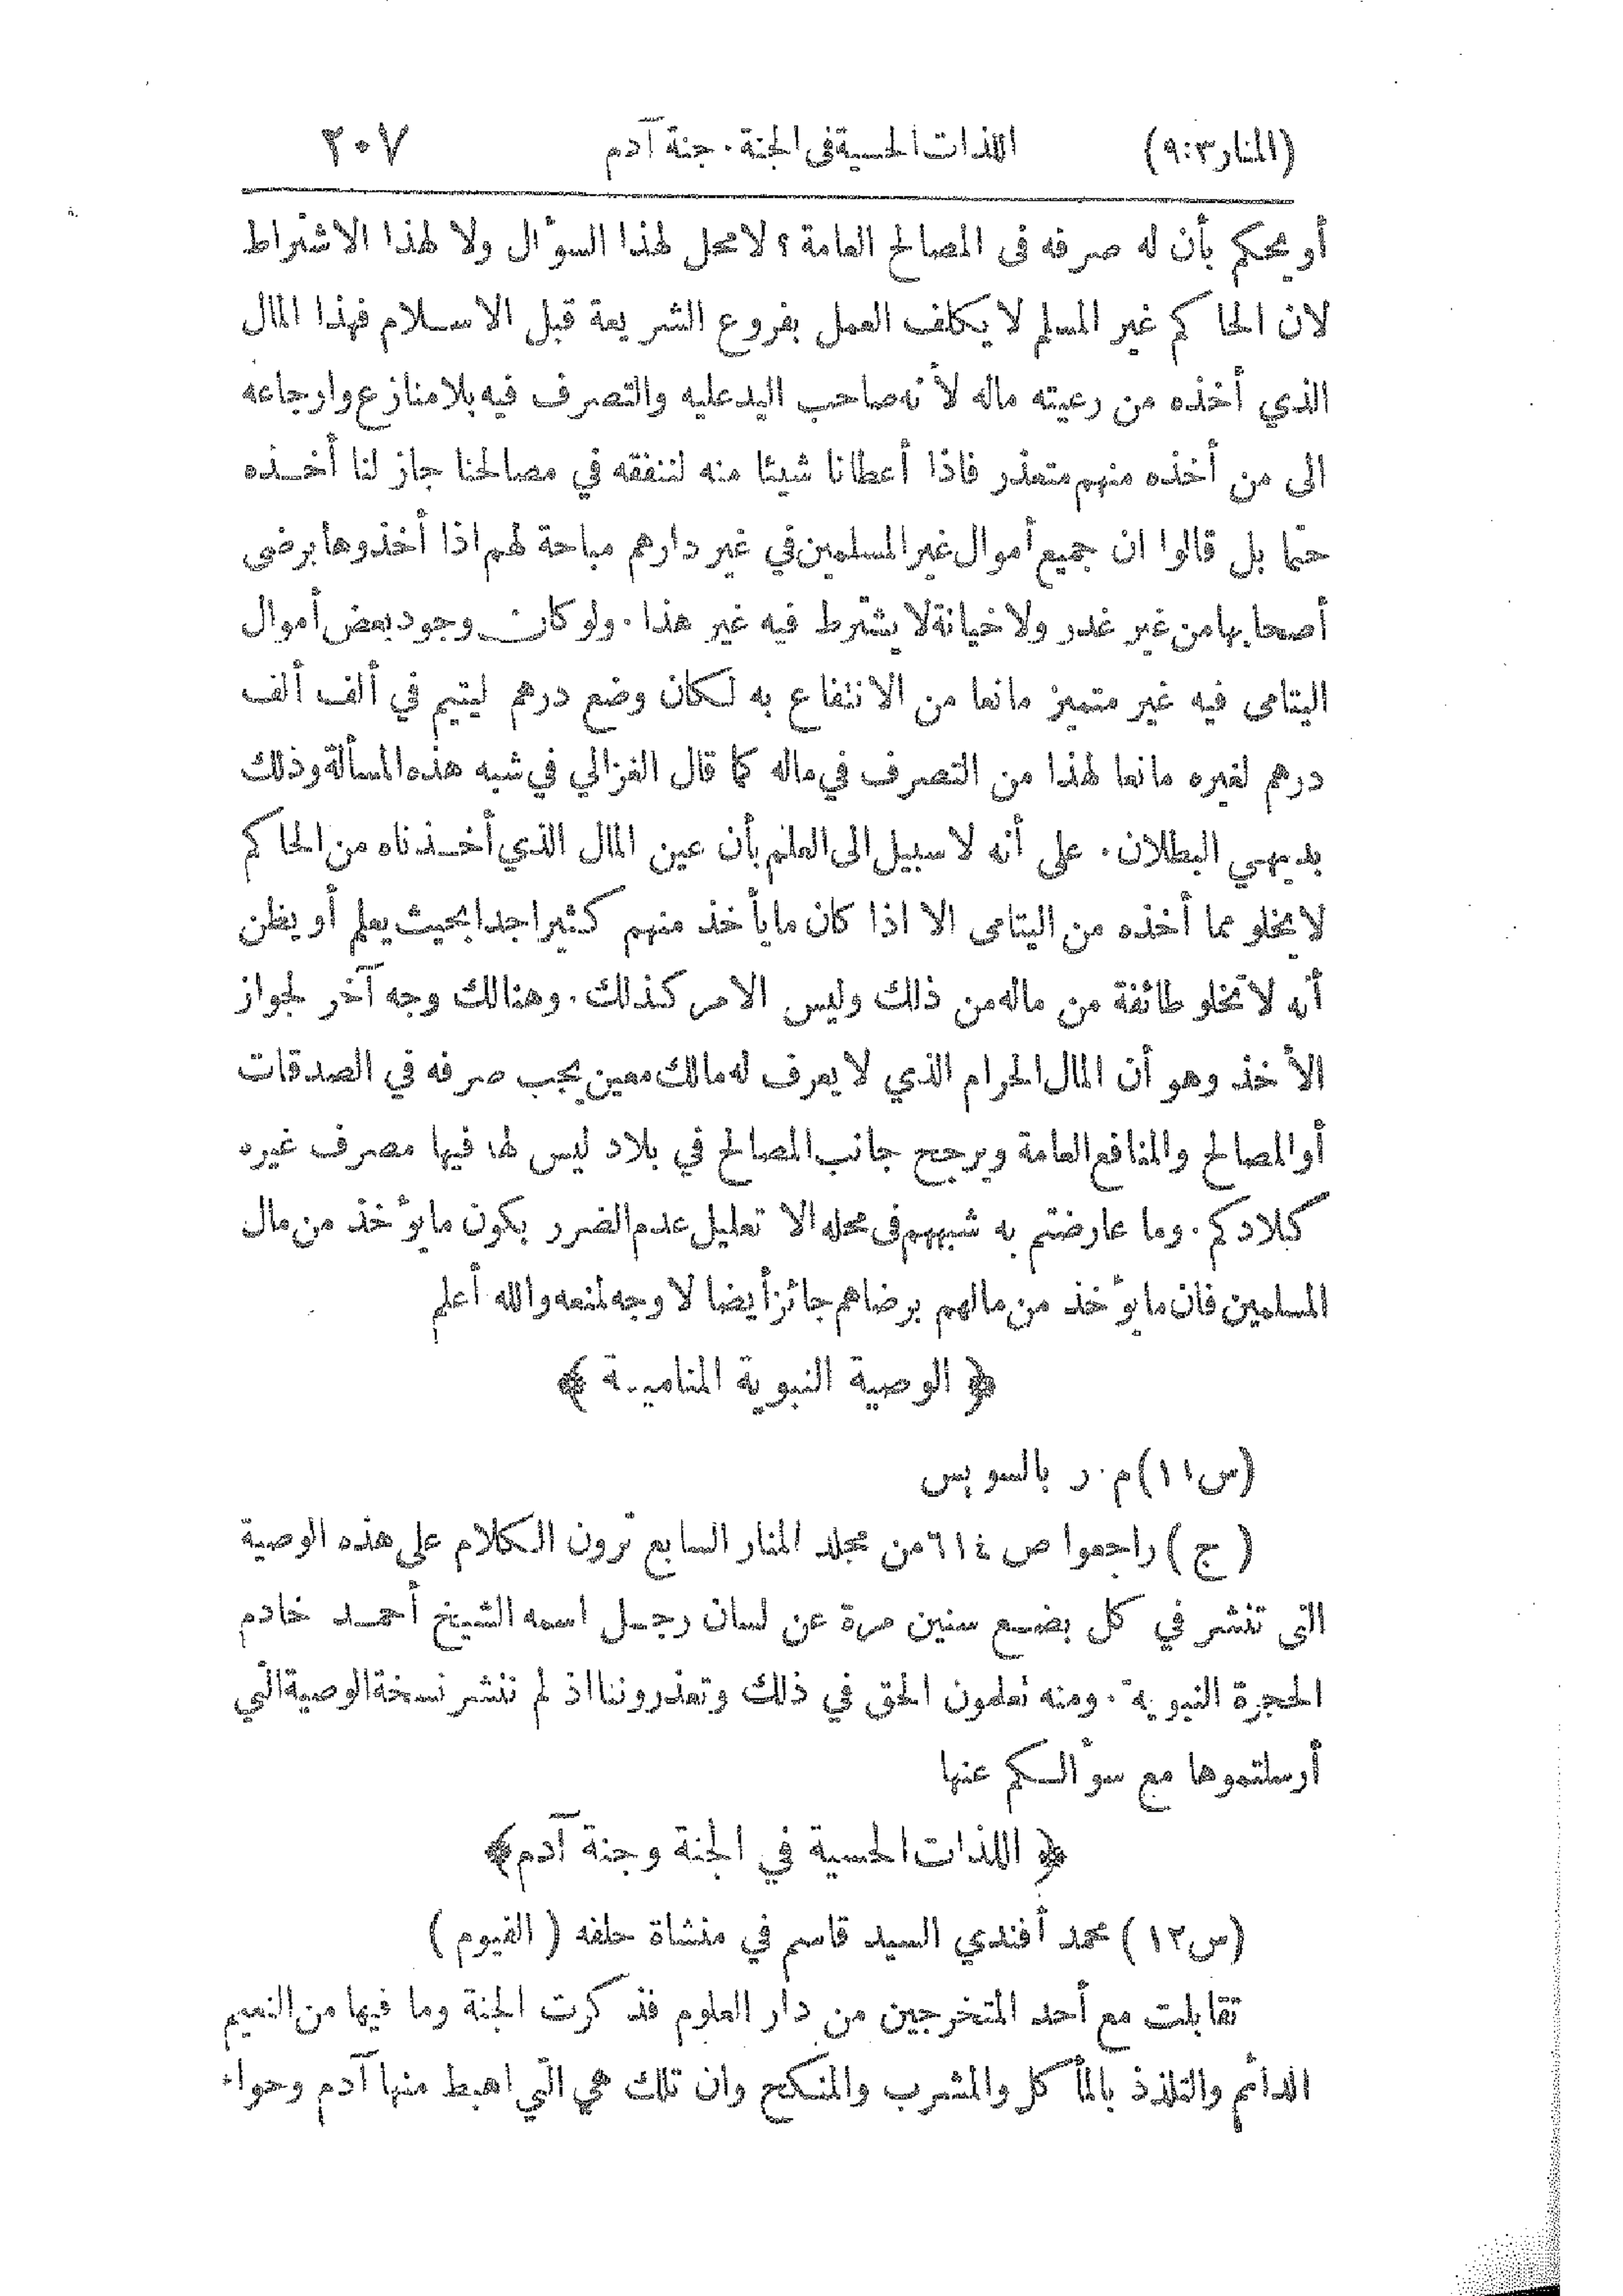 (المنار ٣: ٩) اللذات الحسية في الجنة . جنة آدم ٢٠٧
أو يحكم بأن له صرفه في المصالح العامة ؟ لا محل لهذا السؤال ولا لهذا الاشتراط
لان الحاكم غير المسلم لا يكلف العمل بفروع الشريعة قبل الاسلام فهذا المال
الذي أخذه من رعيته ماله لأنه صاحب اليد عليه والتصرف فيه بلا منازع وارجاعه
الى من أخذه منهم متعذر فاذا أعطانا شيئا منه لننفقه في مصالحنا جاز لنا أخذه
حتما بل قالوا ان جميع أموال غير المسلمين في غير دارهم مباحة لهم اذا أخذوها برضى
أصحابها من غير غدر ولا خيانة لا يشترط فيه غير هذا . ولو كان وجود بعض أموال
اليتامى فيه غير متميز مانعا من الانتفاع به لكان وضع درهم ليتيم في ألف ألف
درهم لغيره مانعا لهذا من التصرف في ماله كما قال الغزالي في شبه هذه المسألة وذلك
بديهي البطلان . على أنه لا سبيل الى العلم بأن عين المال الذي أخذناه من الحاكم
لا يخلو مما أخذه من اليتامى الا اذا كان ما يأخذ منهم كثيرا جدا بحيث يعلم أو يظن
أنه لا تخلو طائفة من ماله من ذلك وليس الامر كذلك . وهنالك وجه آخر لجواز
الأخذ وهو أن المال الحرام الذي لا يعرف له مالك معين يجب صرفه في الصدقات
أو المصالح والمنافع العامة ويرجح جانب المصالح في بلاد ليس لها فيها مصرف غيره
كبلادكم . وما عارضتم به شبههم في محله الا تعليل عدم الضرر بكون ما يؤخذ من مال
المسلمين فان ما يؤخذ من مالهم برضاهم جائز أيضا لا وجه لمنعه والله أعلم
﴿ الوصية النبوية المنامية ﴾
(س١١) م . ر بالسويس
( ج ) راجعوا ص ٦١٤ من مجلد المنار السابع ترون الكلام على هذه الوصية
التي تنشر في كل بضع سنين مرة عن لسان رجل اسمه الشيخ أحمد خادم
الحجرة النبوية . ومنه تعلمون الحق في ذلك وتعذروننا اذ لم ننشر نسخة الوصية التي
أرسلتموها مع سؤالكم عنها
﴿ اللذات الحسية في الجنة وجنة آدم ﴾
(س١٢ ) محمد أفندي السيد قاسم في منشاة حلفه ( الفيوم )
تقابلت مع أحد المتخرجين من دار العلوم فذكرت الجنة وما فيها من النعيم
الدائم والتلذذ بالمأكل والمشرب والمنكح وان تلك هي التي اهبط منها آدم وحواء